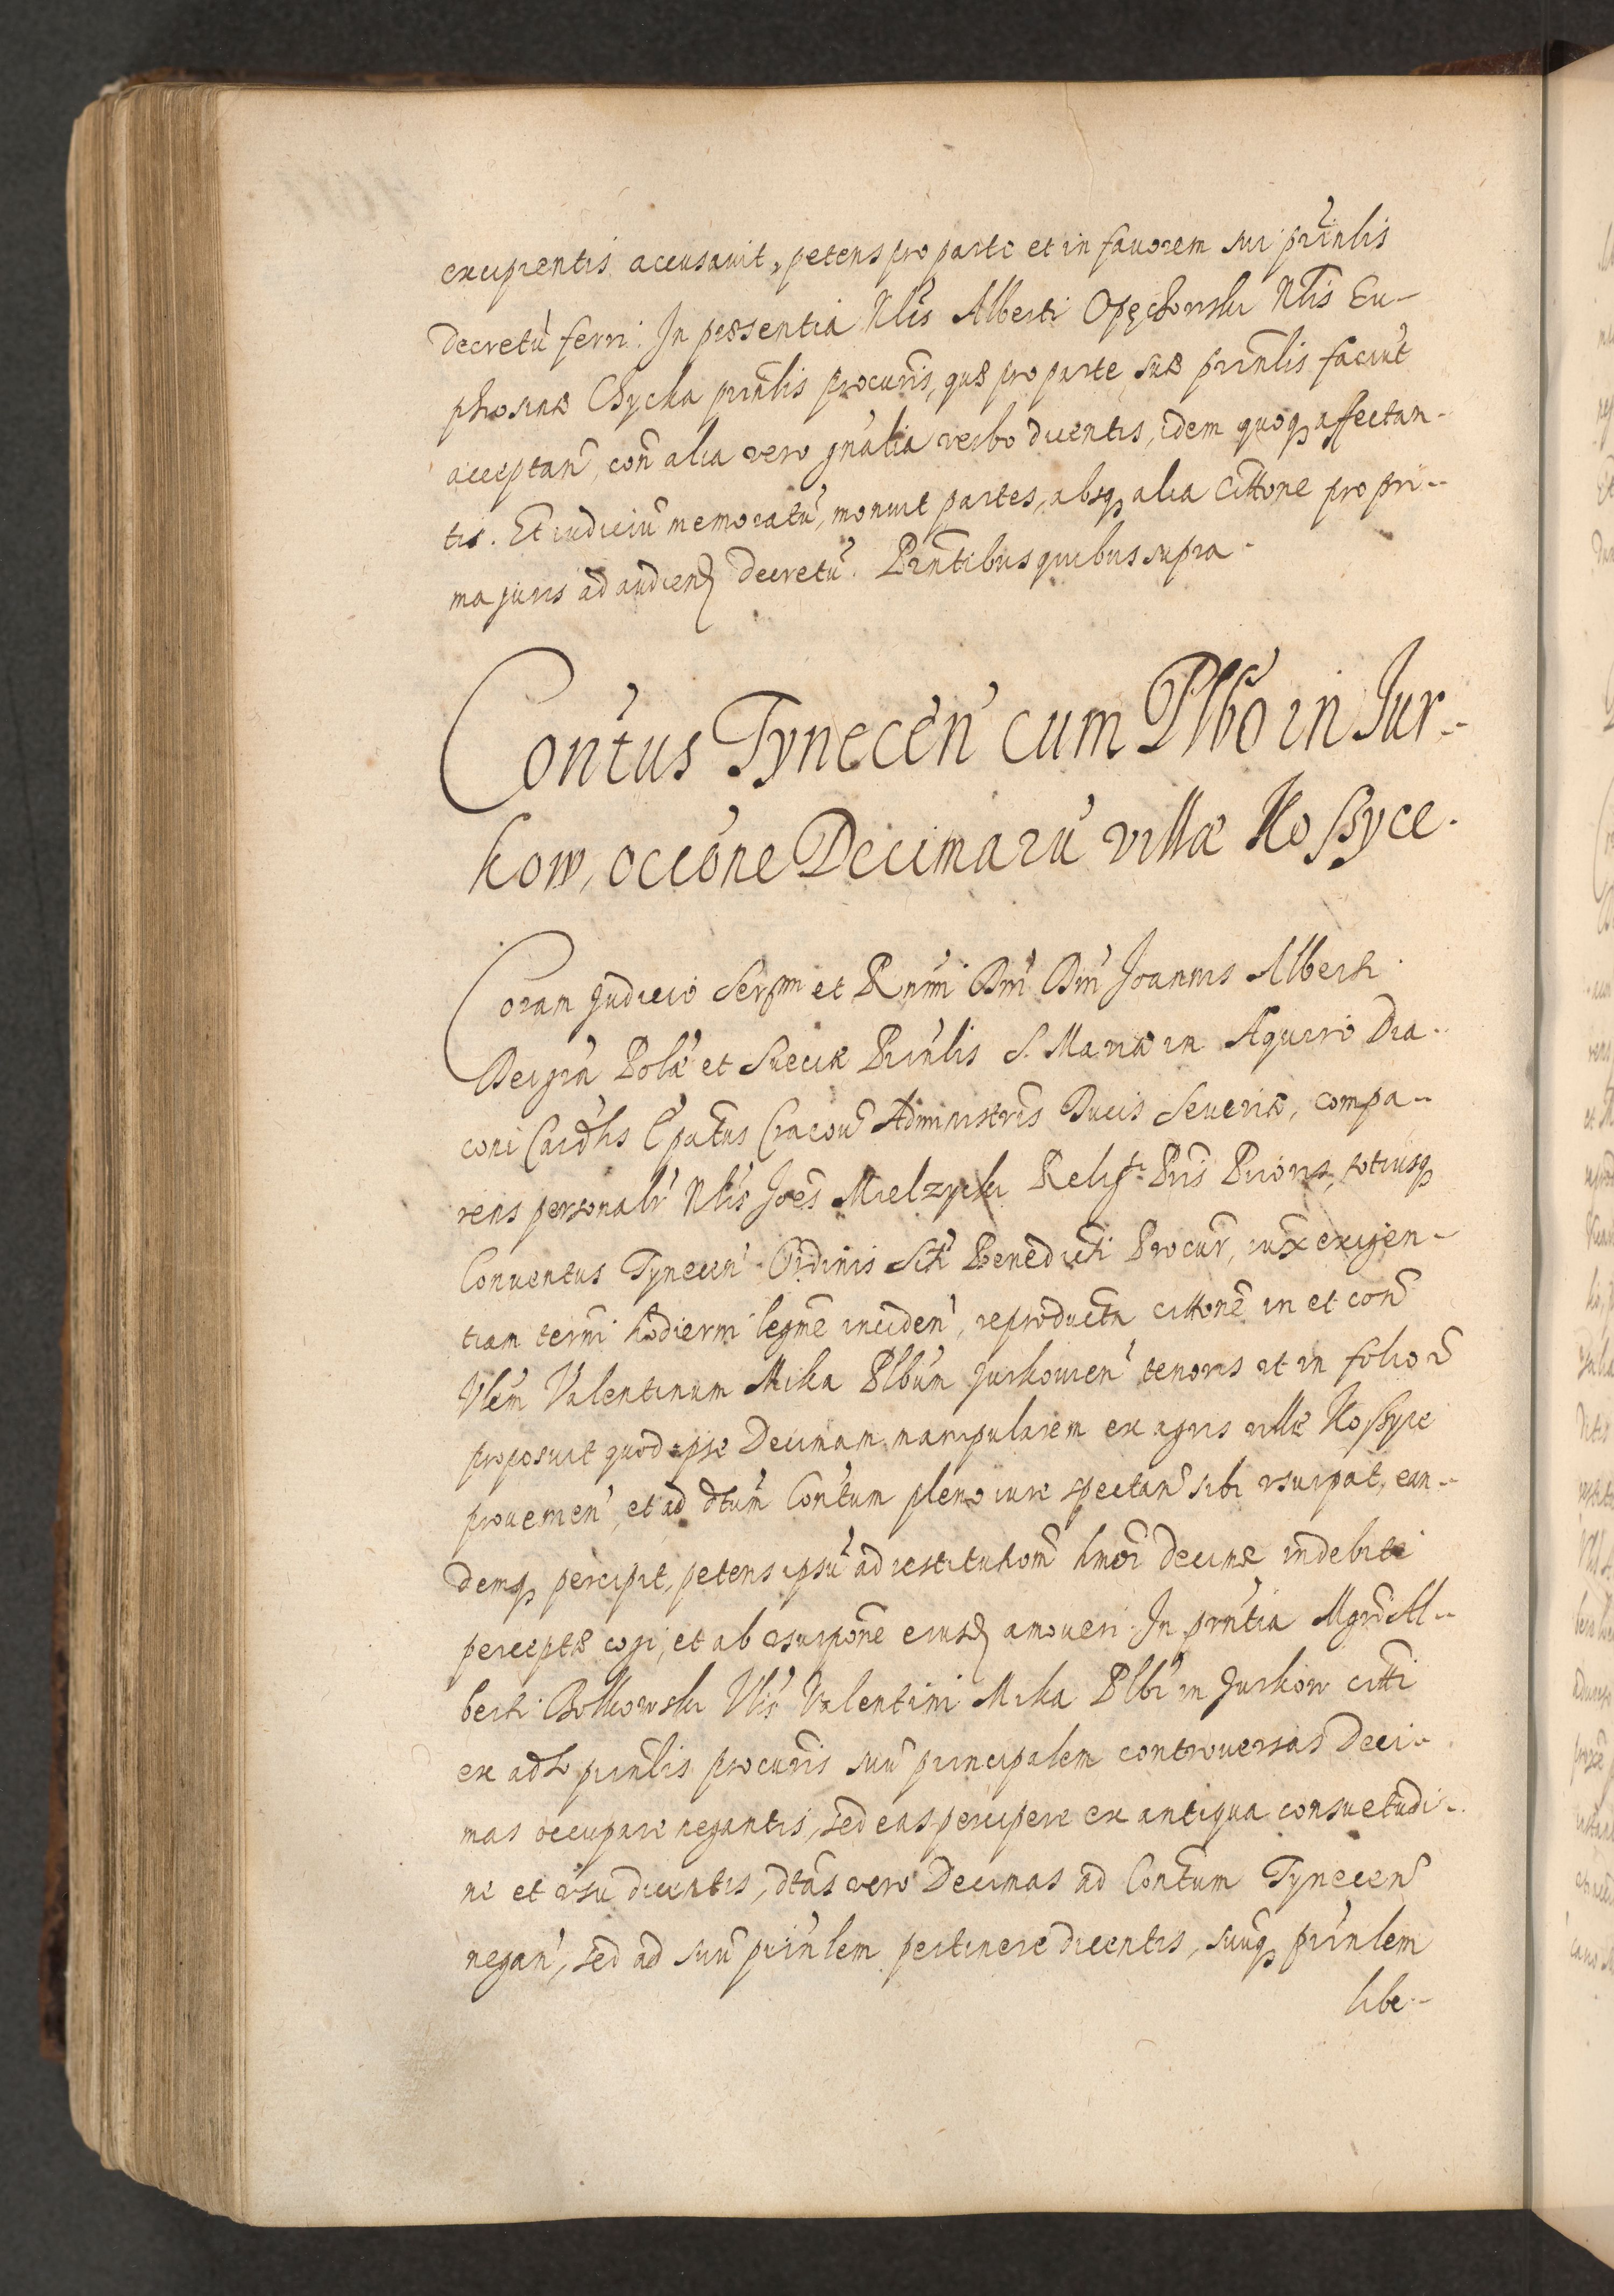 excipientis accusavit, petens pro parte et in favorem sui prinlis
decretu ferri. In praesentia Nlis Alberti Opęchowski Nlis Eu-
phosinae Chycka prinlis procuris, quae pro parte suae prinlis faciut
acceptan, con alia vero gnalia verbo dicentis, idem quoq affectan-
tis. Et iudiciu memoratu, monuit partes, absq alia cittone pro pri-
ma juris ad audiend decretu. Pntibus quibus supra.
Contus Tynecen cum Plbo in Jur-
kow, occone Decimaru villae Koszyce.
Coram Judicio Sermi et Rnmi Dni Dni Joannis Alberti
Dei gra Polae et Sueciae Prinlis S. Mariae in Aquiro Dia-
coni Cardlis Epatus Cracou Administris Ducis Severiae, compa-
rens personalr Nlis Joes Mielzycki Religsi Pris Prioris, totiusq
Conventus Tynecen Ordinis Sti Benedicti Procur, iuxt exigen-
tiam termi hodierni legme inciden, reproducta cittone in et con
Vlem Valentinum Mika Plbum Jurkovien tenoris ut in folio
proposuit quod ipse Decimam manipularem ex agris villae Koszyce
provenien, et ad dtum Contum pleno iure spectan sibi usurpat, ean-
demq percipit, petens ipsu ad restitutiom hmoi decimae indebite
perceptae cogi, et ab usurpone eiusd amoveri. In pntia Mgri Al-
berti Bolkowski Vlis Valentini Mika Plbi in Jurkow citti
ex adso prinlis procuris suu principalem controversas Deci-
mas occupare negantis, sed eas percipere ex antiqua consuetudi-
ne et usu dicentis, dtas vero Decimas ad Contum Tynecen
negan, sed ad suu prinlem pertinere dicentis, suuq prinlem
libe-